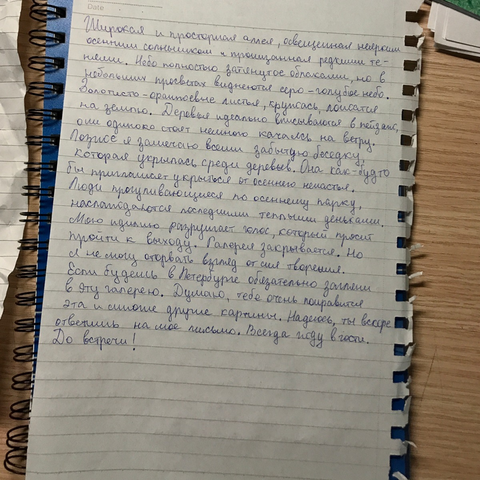 Date
Широкая и просторная аллея, освещенная неярким
осенним солнышком и пронизанная редкими те-
нями. Небо полностью затянутое облаками, но в
небольших просветах виднеются серо-голубое небо.
Золотисто-оранжевые листья, кружась, ложатся
на землю. Деревья идеально вписываются в пейзаж,
они одиноко стоят немного качаясь на ветру.
Позже я замечаю всеми забытую беседку,
которая укрылась среди деревьев. Она как-будто
бы приглашает укрыться от осеннего ненастья.
Люди прогуливающиеся по осеннему парку,
наслаждаются последними теплыми деньками.
Мою идиллию разрушает голос, который просит
пройти к выходу. Галерея закрывается. Но
я не могу оторвать взгляд от сия творения.
Если будешь в Петербурге обязательно загляни
в эту галерею. Думаю, тебе очень понравится
эта и многие другие картины. Надеюсь, ты вскоре
ответишь на мое письмо. Всегда жду в гости.
До встречи!